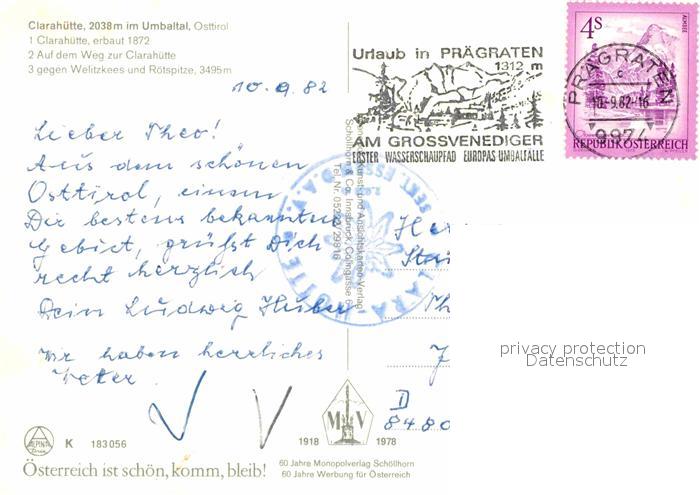 Clarahütte, 2038m im Umbaltal, Osttirol
1 Clarahütte, erbaut 1872
2 Auf dem Weg zur Clarahütte
3 gegen Welitzkees und Rötspitze, 3495m
10.9.82
Lieber Theo!
Aus dem schönen
Osttirol, einem
Dir bestens bekannten
Gebiet, grüßt Dich
recht herzlich
Dein Ludwig Huber
Wir haben herrliches
Wetter.
Urlaub in PRÄGRATEN
1312 m
AM GROSSVENEDIGER
ERSTER WASSERSCHAUPFAD EUROPAS UMBALFÄLLE
4S
PRÄGRATEN
c
10.-9.82-16
9974
REPUBLIK ÖSTERREICH
Kunst- und Ansichtskarten-Verlag
Schöllhorn & Co, Innsbruck,
Tel. Nr. 05222/29816
SEKT. ESSEN
CLARA-HÜTTE
Ö.A.V.
Her
Th
D
8480
privacy protection
Datenschutz
MV
1918 1978
ALPINA
K 183056
Österreich ist schön, komm, bleib!
60 Jahre Monopolverlag Schöllhorn
60 Jahre Werbung für Österreich